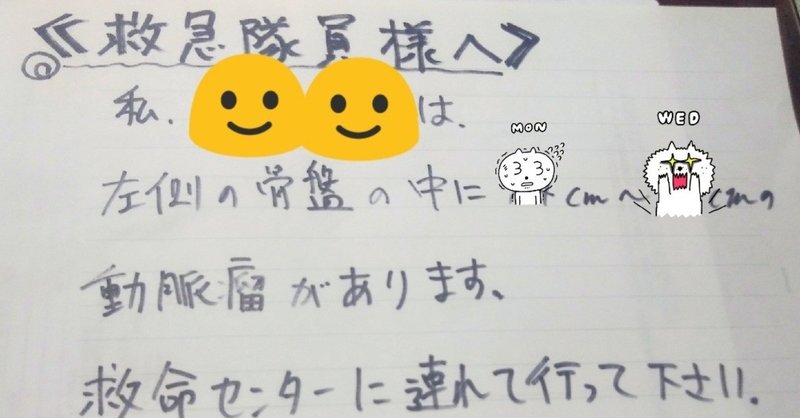 ≪救急隊員様へ≫
私、は、
MON WED
左側の骨盤の中に cm〜 cmの
動脈瘤があります、
救命センターに連れて行って下さい.